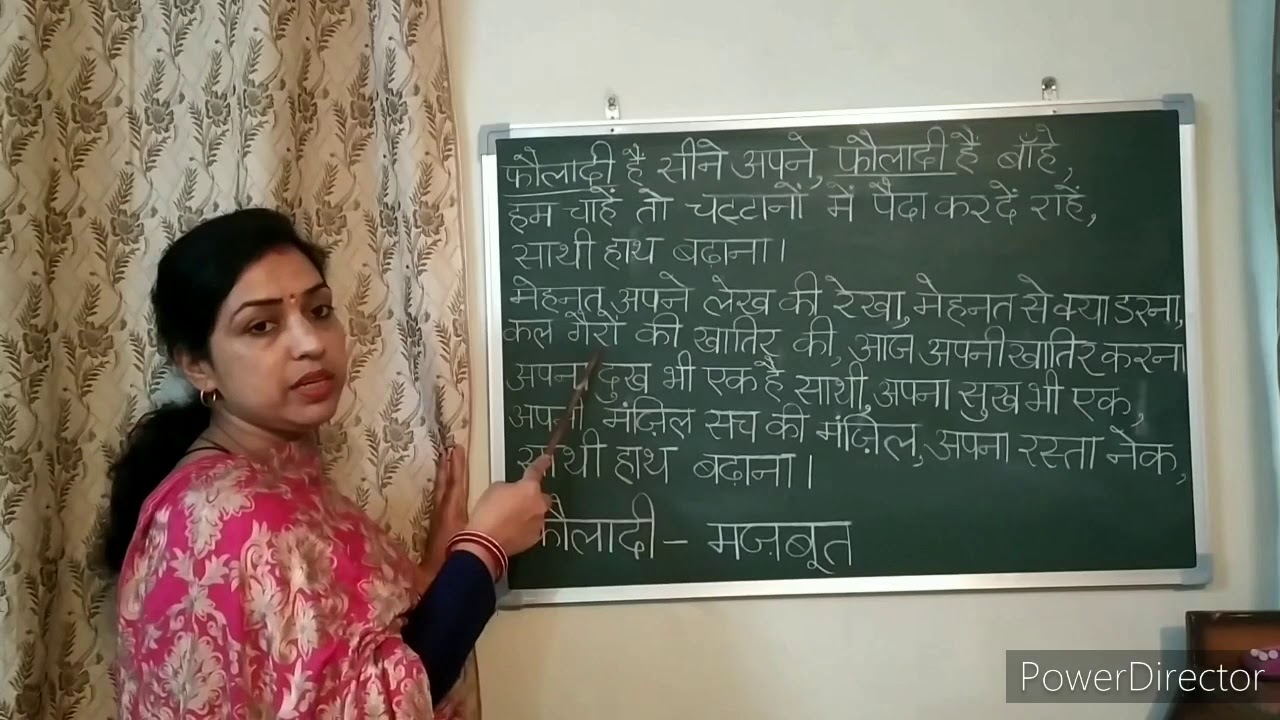 फौलादी है सीने अपने, फौलादी हैं बाँहे,
हम चाहें तो चट्टानों में पैदा करदें राहें,
साथी हाथ बढ़ाना।
मेहनत अपने लेख की रेखा, मेहनत से क्या डरना,
कल गैरों की खातिर की, आज अपनी खातिर करना
अपना दुख भी एक है साथी, अपना सुख भी एक,
अपनी मंज़िल सच की मंज़िल, अपना रस्ता नेक,
साथी हाथ बढ़ाना।
फौलादी - मज़बूत
PowerDirector